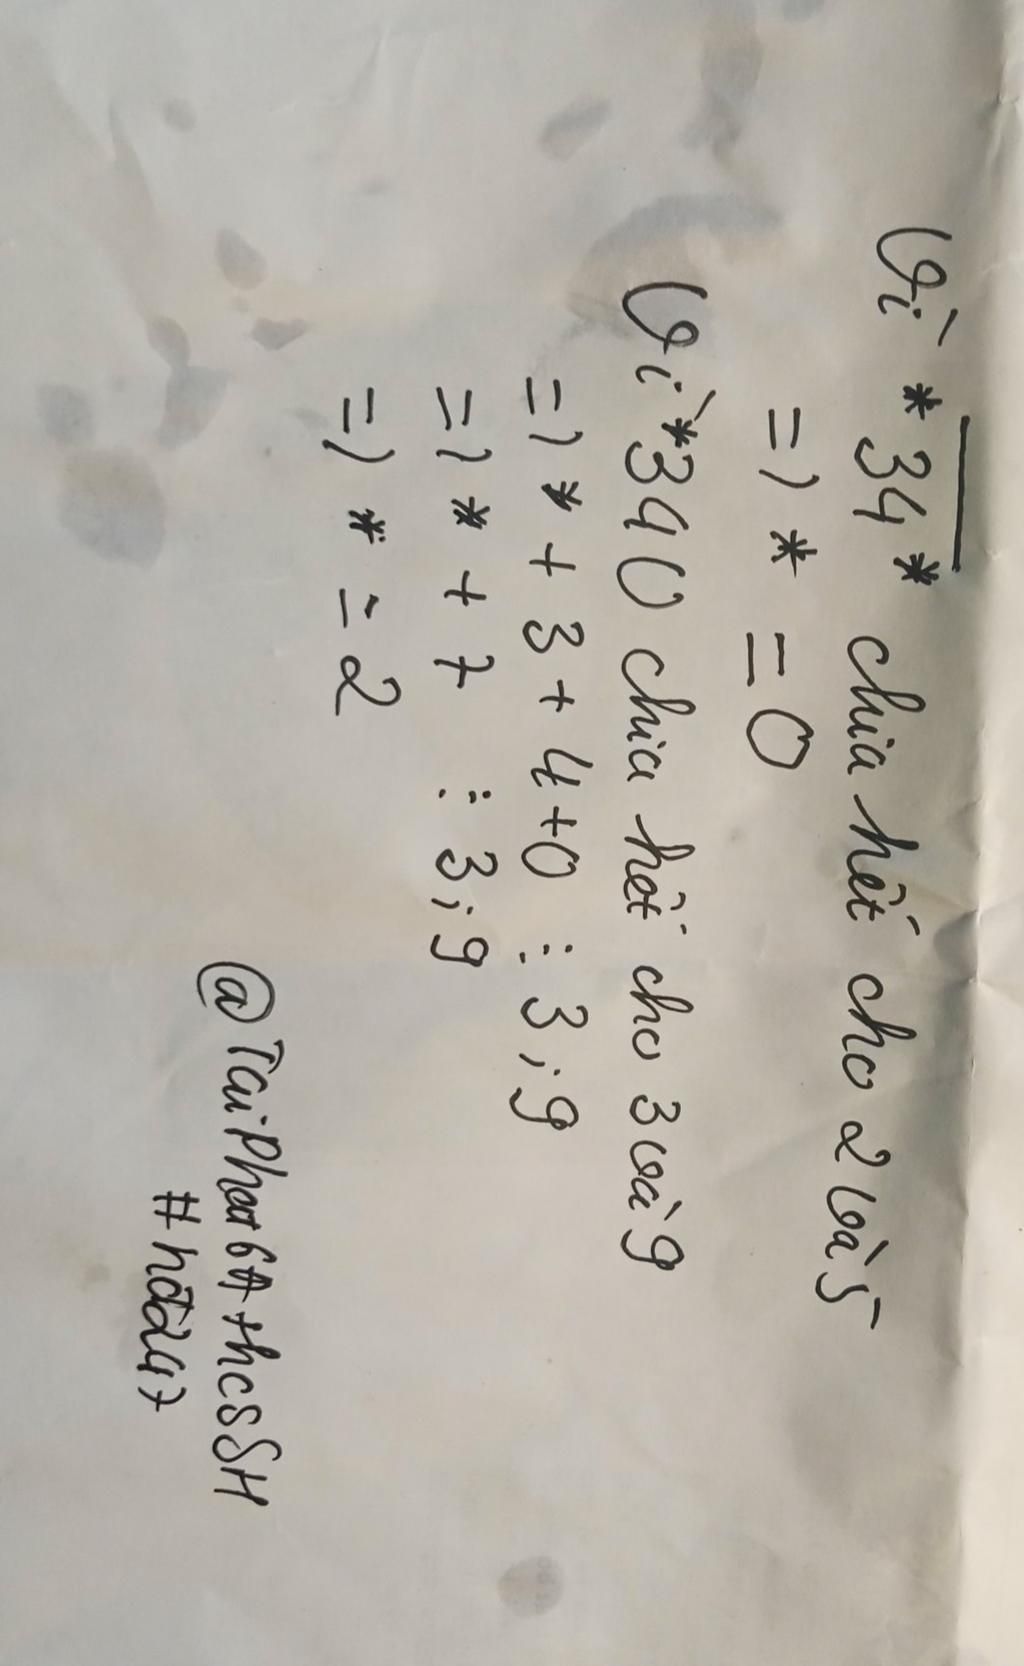 Vì *34* chia hết cho 2 và 5
=) * = 0
Vì *340 chia hết cho 3 và 9
=) * + 3 + 4 + 0 ⋮ 3 ; 9
=) * + 7 ⋮ 3 ; 9
=) * = 2
@TaiPhat6A thcsSH
#hđ247